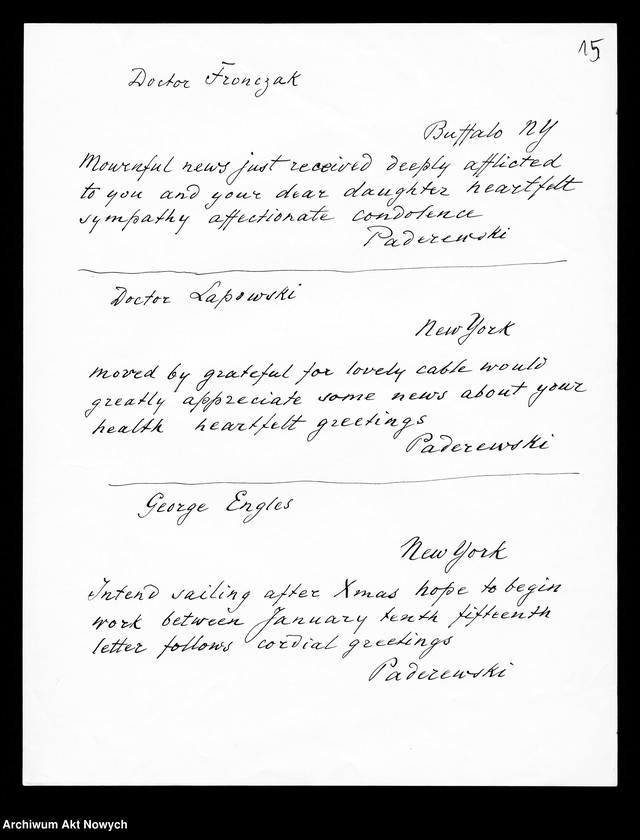 15
Doctor Fronczak
Buffalo NY
Mournful news just received deeply afflicted
to you and your dear daughter heartfelt
sympathy affectionate condolence
Paderewski
Doctor Lapowski
New York
moved by grateful for lovely cable would
greatly appreciate some news about your
health heartfelt greetings
Paderewski
George Engles
New York
Intend sailing after Xmas hope to begin
work between January tenth fifteenth
letter follows cordial greetings
Paderewski
Archiwum Akt Nowych